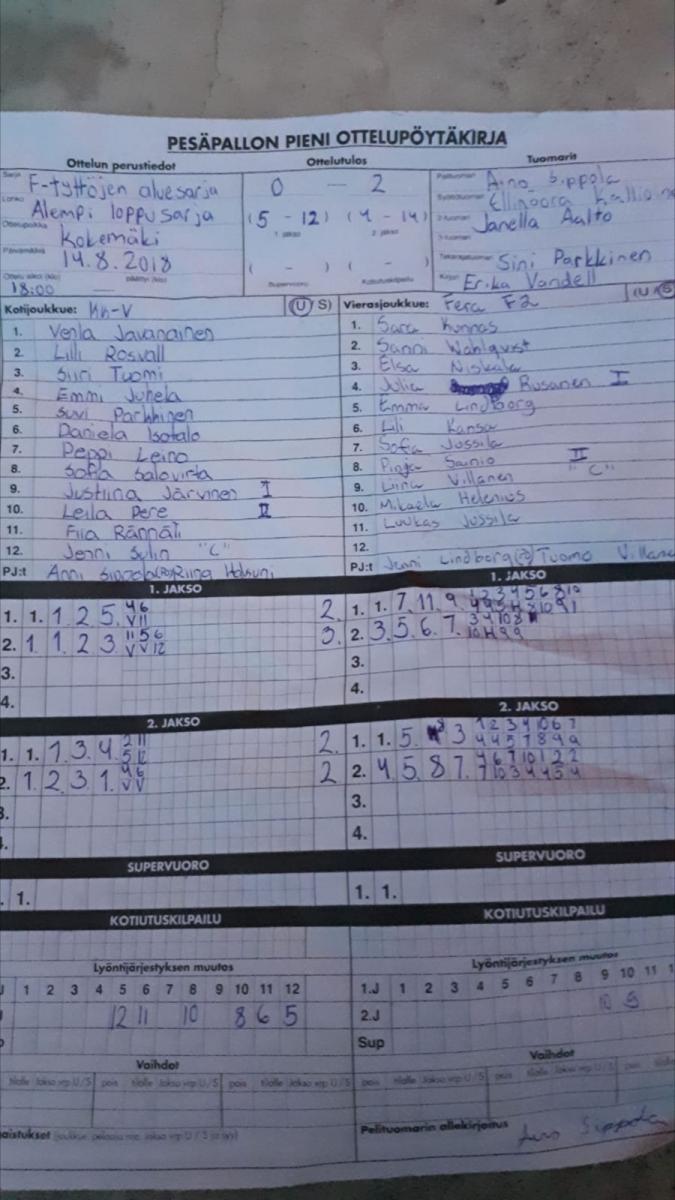 PESÄPALLON PIENI OTTELUPÖYTÄKIRJA
Ottelun perustiedot Ottelutulos Tuomarit
Sarja F-tyttöjen aluesarja
Lohko Alempi loppusarja
Ottelupaikka Kokemäki
Päivämäärä 14.8.2018
18:00
0 - 2
(5 - 12) (4 - 14)
1. jakso 2. jakso
( - ) ( - )
Supervuoro Kotiutuskilpailu
Pelituomari Aino Sippola
Ellinoora
2-tuomari Janella Aalto
3-tuomari
Takarajatuomari Sini Parkkinen
Kirjuri Erika Vandell
Kotijoukkue: KK-V (U S)
1. Venla Javanainen
2. Lilli Rosvall
3. Siiri Tuomi
4. Emmi Juhela
5. Suvi Parkkinen
6. Daniela Isotalo
7. Peppi Leino
8. Sofia Salovirta
9. Justiina Järvinen I
10. Leila Pere II
11. Fiia Rännäli
12. Jenni Sylin "C"
PJ:t Anni
Vierasjoukkue: Fera F2 (U S
1. Sara Kunnas
2. Sanni Wahlqvist
3. Elsa Niskala
4. Julia Rusanen I
5. Emma Lindborg
6. Lili Kansa
7. Sofia Jussila
8. Pinja Sainio II "C"
9. Liina Villanen
10. Mikaela Helenius
11. Luukas Jussila
12.
PJ:t Jenni Lindborg Tuomo Villane
1. JAKSO
1. 1. 1. 2. 5. 4 6
V 11
2. 1. 1. 2. 3. 11 5 6
V V 12
3.
4.
1. JAKSO
2. 1. 1. 7. 11. 9.
3. 2. 3. 5. 6. 7.
3.
4.
2. JAKSO
1. 1. 1. 3. 4.
2. 1. 2. 3. 1. 4 6
V V
3.
4.
2. JAKSO
2. 1. 1. 5. 3 1 2 3 4 10 6 7
4 4 5 7 8 9 9
2 2. 4. 5. 8. 7. 4 6 7 10 1 2 2
7 10 3 4 4 5 4
3.
4.
SUPERVUORO
1.
SUPERVUORO
1. 1.
KOTIUTUSKILPAILU
KOTIUTUSKILPAILU
Lyöntijärjestyksen muutos
J 1 2 3 4 5 6 7 8 9 10 11 12
12 11 10 8 6 5
Lyöntijärjestyksen muutos
1.J 1 2 3 4 5 6 7 8 9 10 11 1
2.J 10 9
Sup
Vaihdot
tilalle Jakso vrp U / S pois tilalle Jakso vrp U / S pois tilalle Jakso vrp U / S
Vaihdot
pois tilalle Jakso vrp U / S pois tilalle Jakso vrp U / S pois
Pelituomarin allekirjoitus
Aino Sippola